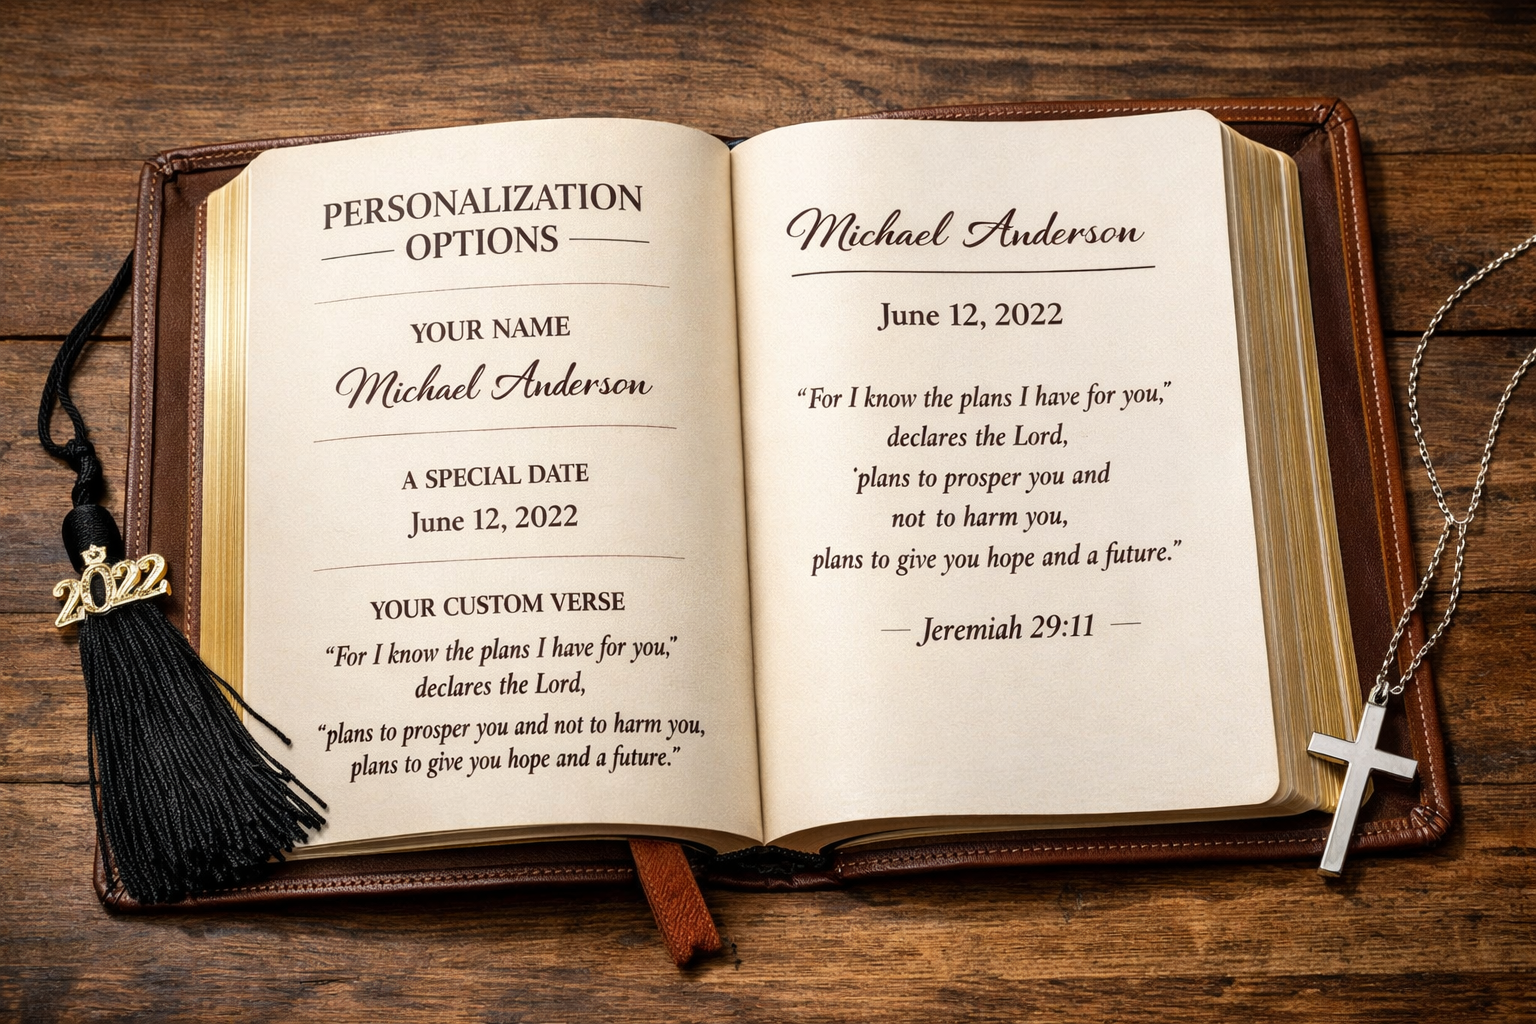 PERSONALIZATION
OPTIONS
YOUR NAME
Michael Anderson
A SPECIAL DATE
June 12, 2022
YOUR CUSTOM VERSE
“For I know the plans I have for you,”
declares the Lord,
“plans to prosper you and not to harm you,
plans to give you hope and a future.”
Michael Anderson
June 12, 2022
“For I know the plans I have for you,”
declares the Lord,
‘plans to prosper you and
not to harm you,
plans to give you hope and a future.”
— Jeremiah 29:11 —
2022